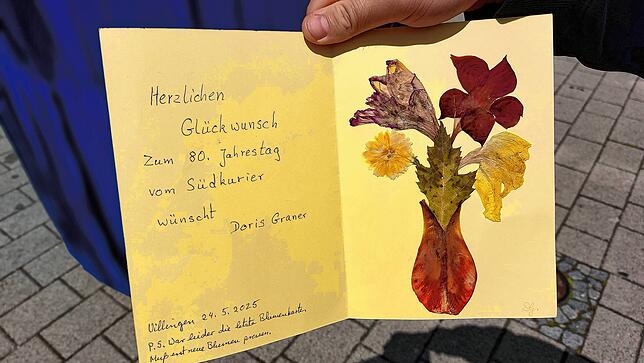 Herzlichen
Glückwunsch
Zum 80. Jahrestag
vom Südkurier
wünscht
Doris Graner
Villingen 24. 5. 2025
P.S. War leider die letzte Blumenkarte.
Muß erst neue Blumen pressen.